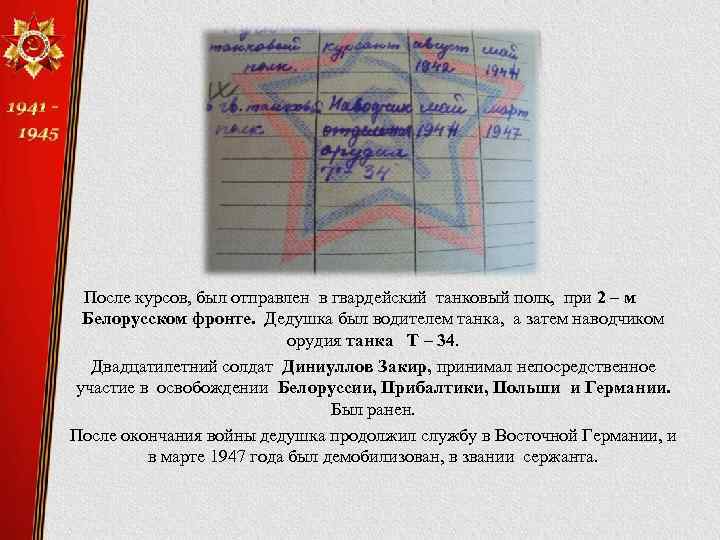 танковый курсант август май
полк. 1942 1944
гв. танков Наводчик май март
полк. отделения 1944 1947
орудия
Т-34
1941 -
1945
После курсов, был отправлен в гвардейский танковый полк, при 2 – м
Белорусском фронте. Дедушка был водителем танка, а затем наводчиком
орудия танка Т – 34.
Двадцатилетний солдат Диниуллов Закир, принимал непосредственное
участие в освобождении Белоруссии, Прибалтики, Польши и Германии.
Был ранен.
После окончания войны дедушка продолжил службу в Восточной Германии, и
в марте 1947 года был демобилизован, в звании сержанта.